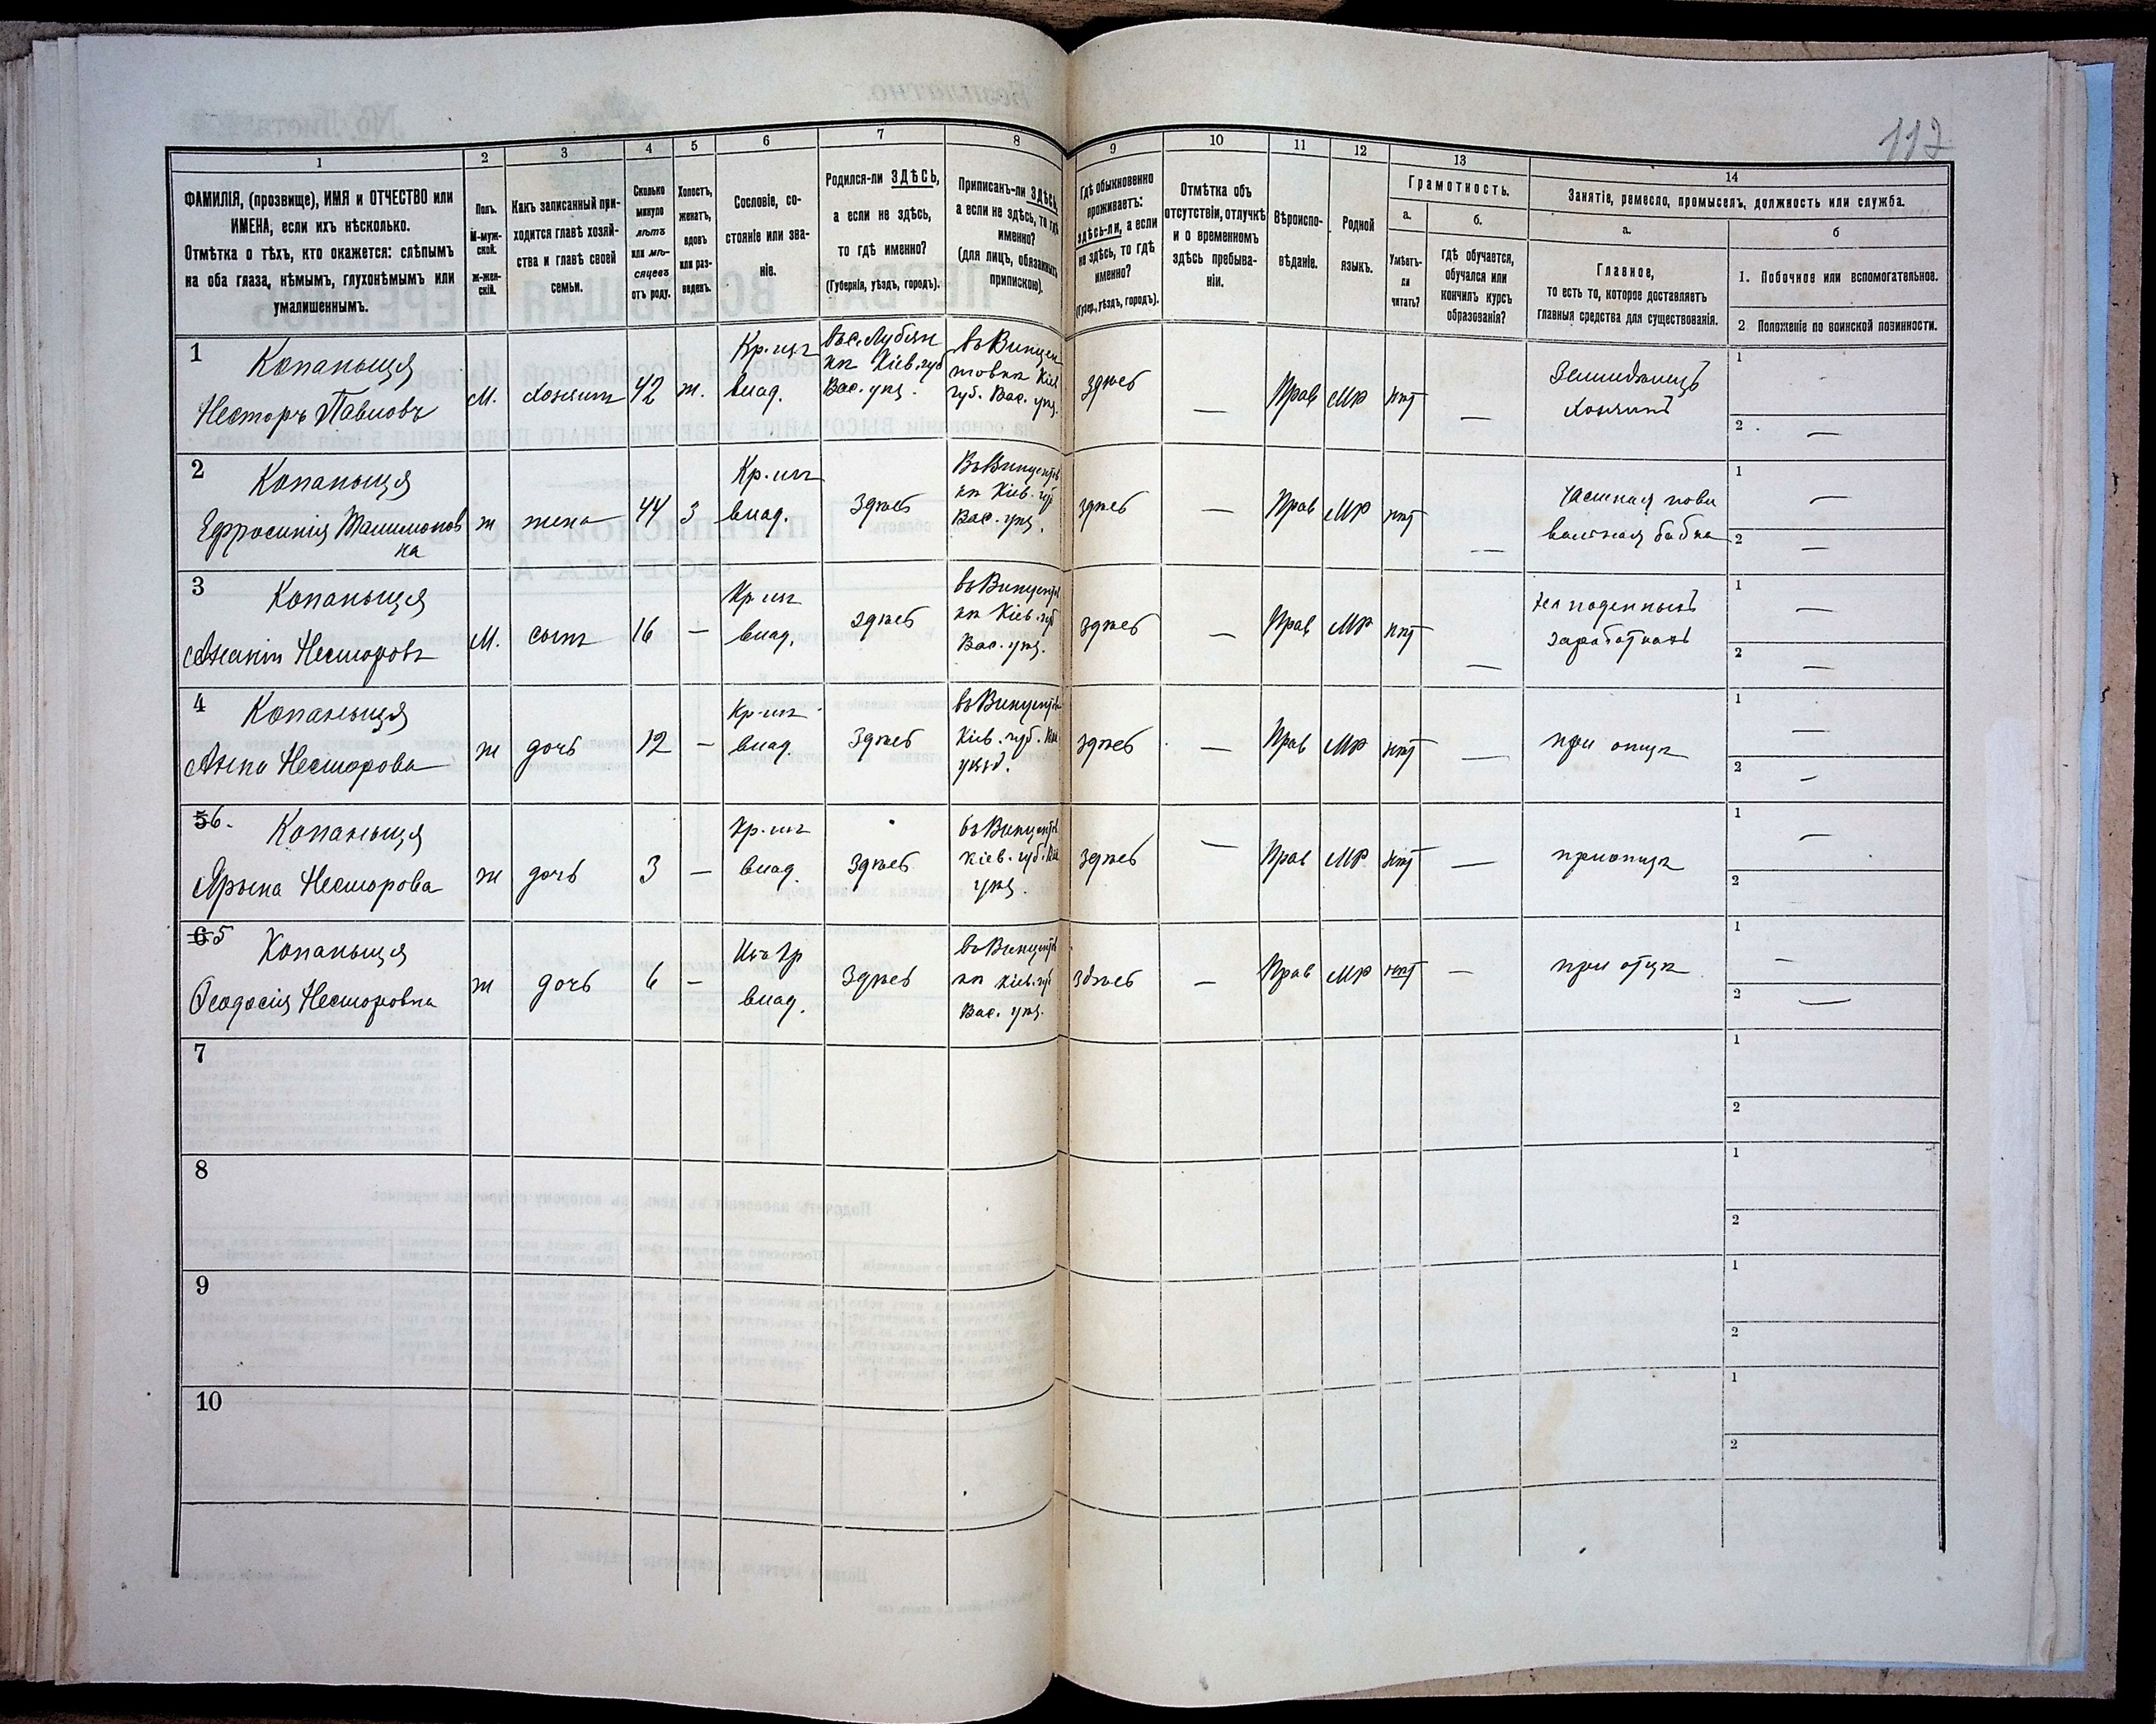 117
1
2
3
4
5
6
7
8
9
10
11
12
13
14
ФАМИЛІЯ, (прозвище), ИМЯ и ОТЧЕСТВО или
ИМЕНА, если ихъ нѣсколько.
Отмѣтка о тѣхъ, кто окажется: слѣпымъ
на оба глаза, нѣмымъ, глухонѣмымъ или
умалишеннымъ.
Полъ.
М-муж-
ской.
ж-жен-
скій.
Какъ записанный при-
ходится главѣ хозяй-
ства и главѣ своей
семьи.
Сколько
минуло
лѣтъ
или мѣ-
сяцевъ
отъ роду.
Холостъ,
женатъ,
вдовъ
или раз-
веденъ.
Сословіе, со-
стояніе или зва-
ніе.
Родился-ли ЗДѢСЬ,
а если не здѣсь,
то гдѣ именно?
(Губернія, уѣздъ, городъ).
Приписанъ-ли ЗДѢСЬ,
а если не здѣсь, то гдѣ
именно?
(для лицъ, обязанныхъ
припискою).
Гдѣ обыкновенно
проживаетъ:
здѣсь-ли, а если
не здѣсь, то гдѣ
именно?
(Губер., уѣздъ, городъ).
Отмѣтка объ
отсутствіи, отлучкѣ
и о временномъ
здѣсь пребыва-
ніи.
Вѣроиспо-
вѣданіе.
Родной
языкъ.
Грамотность.
а.
Умѣетъ-
ли
читать?
б.
гдѣ обучается,
обучался или
кончилъ курсъ
образованія?
Занятіе, ремесло, промыселъ, должность или служба.
а.
Главное,
то есть то, которое доставляетъ
главныя средства для существованія.
б
1. Побочное или вспомогательное.
2. Положеніе по воинской повинности.
1
Копаныця
Несторъ Павловъ
М. хозяинъ 42 ж.
Кр. изъ
влад.
въ с. Лубян
кѣ Кіев. губ
Вас. уѣз.
въ Винцен
товкѣ Кіев
губ. Вас. уѣз.
здѣсь — Прав МР нѣт —
Земледѣлецъ
хозяинъ
1
2 —
2
Копаныця
Ефросинія
на
ж жена 44 З
Кр. изъ
влад.
здѣсь
Въ Винцентов
кѣ Кіев. губ
Вас. уѣз.
здѣсь — Прав МР нѣт —
пови
вальная бабка
1 —
2 —
3
Копаныця
Несторовъ
М. сынъ 16 —
Кр изъ
влад.
здѣсь
въ Винцентов
кѣ Кіев. губ
Вас. уѣз.
здѣсь — Прав МР нѣт —
на поденныхъ
заработкахъ
1 —
2 —
4
Копаныця
Анна Несторова
ж дочь 12 —
Кр. изъ
влад.
здѣсь
въ Винцентов
Кіев. губ.
уѣзд.
здѣсь — Прав МР нѣт —
при отцѣ
1 —
2 —
5 6.
Копаныця
Ярына Несторова
ж дочь 3 —
Кр. изъ
влад.
здѣсь
въ Винцентов
Кіев. губ.
уѣз.
здѣсь — Прав МР нѣт —
при отцѣ
1 —
2
6 5
Копаныця
Ѳеодосія Несторовна
ж дочь 6 —
Изъ Кр
влад.
здѣсь
въ Винцентов
кѣ Кіев. губ
Вас. уѣз.
здѣсь — Прав МР нѣт —
при отцѣ
1 —
2 —
7
1
2
8
1
2
9
1
2
10
1
2